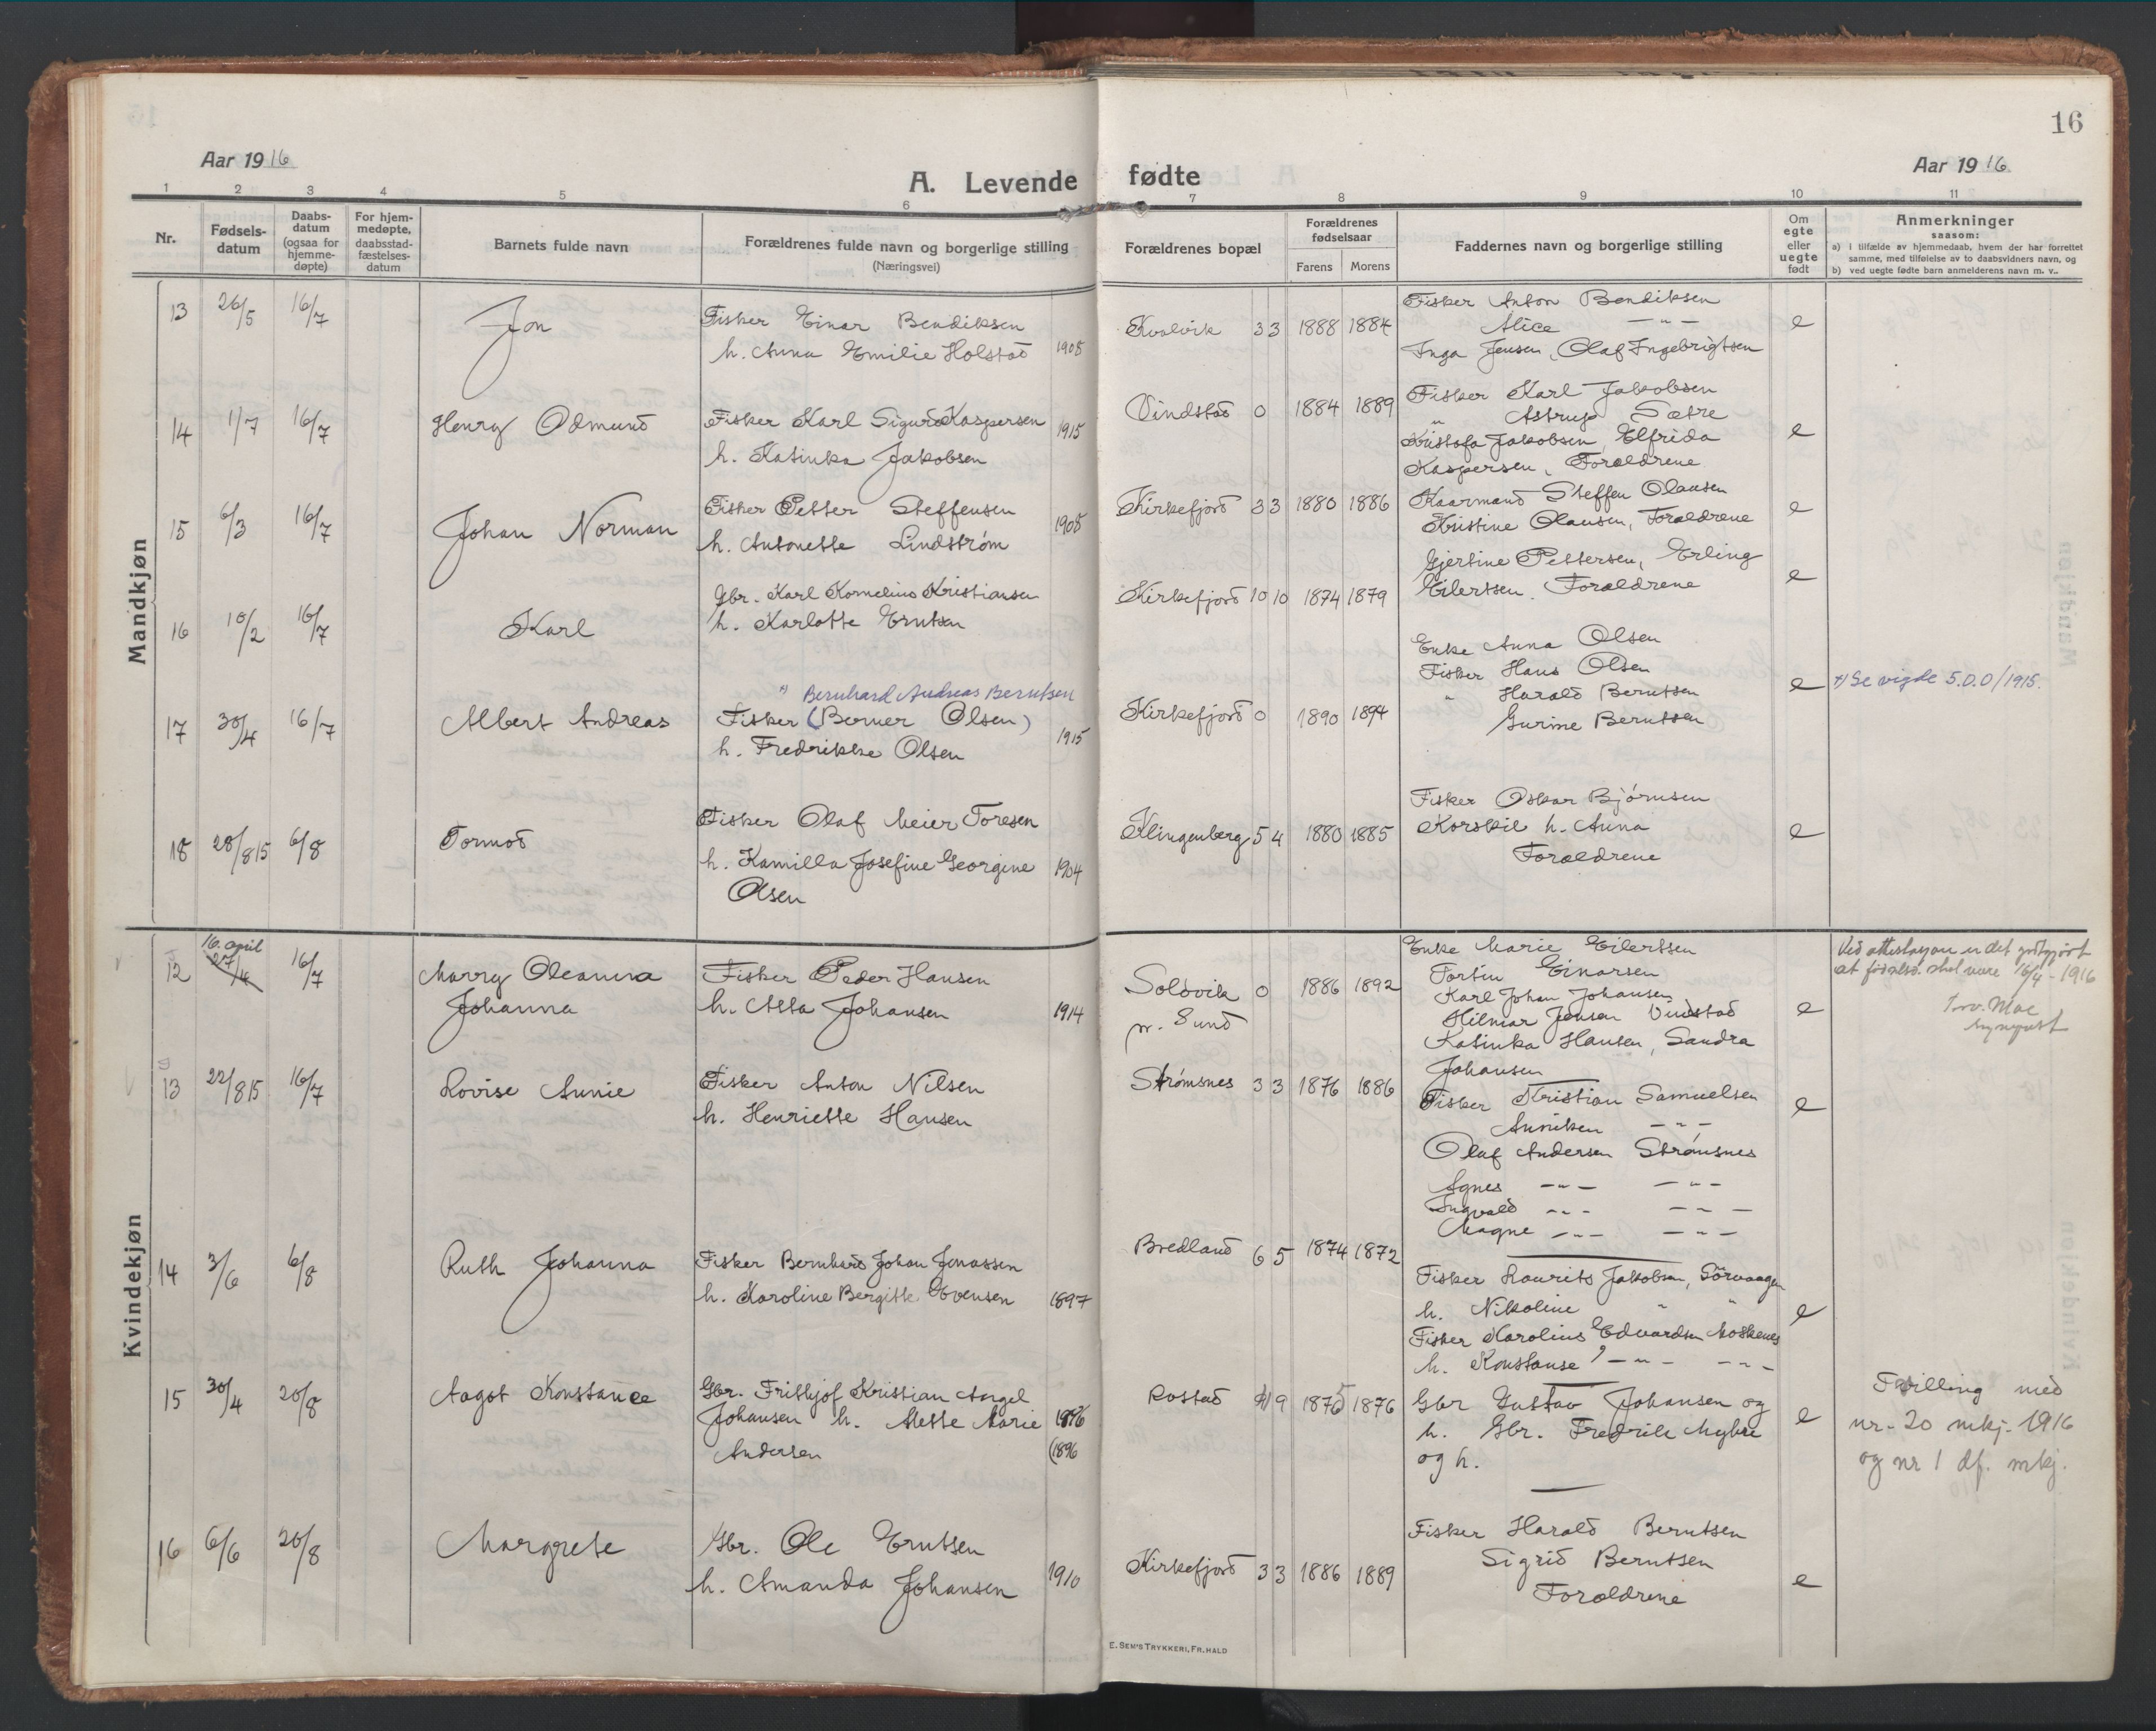 16
Aar 1916
Aar 1916
A. Levende fødte
1 2 3 4 5 6 7 8 9 10 11
Nr.
Fødsels-
datum
Daabs-
datum
(ogsaa for
hjemme-
døpte)
For hjem-
medøpte,
daabsstad-
fæstelses-
datum
Barnets fulde navn
Forældrenes fulde navn og borgerlige stilling
(Næringsvei)
Forældrenes bopæl
Forældrenes
fødselsaar
Farens Morens
Faddernes navn og borgerlige stilling
Om
egte
eller
uegte
født
Anmerkninger
saasom:
a) i tilfælde av hjemmedaab, hvem der har forrettet
samme, med tilføielse av to daabsvidners navn, og
b) ved uegte fødte barn anmelderens navn m. v..
Mandkjøn
13 26/5 16/7 Jon
Fisker Einar Bendiksen
h. Anna Emilie Holstad 1908
Kvalvik 3 3 1888 1884
Fisker Anton Bendiksen
Alice — " —
Inga Jensen, Olaf Ingebrigtsen
e
14 1/7 16/7 Henry Odmund
Fisker Karl Sigurd Kaspersen 1915
h. Katinka Jakobsen
Vindstad 0 1884 1889
Fisker Karl Jakobsen
" Astrup Sætre
Kristofa Jakobsen, Elfrida
Kaspersen, Foreldrene
e
15 6/3 16/7 Johan Norman
Fisker Petter Steffensen
h. Antonette Lindstrøm 1908
Kirkefjord 3 3 1880 1886
Kaarmand Steffen Olausen
Kristine Olausen, Foreldrene
e
16 10/2 16/7 Karl
Gbr. Karl Kornelius Kristiansen
h. Karlotte Erntsen
Kirkefjord 10 10 1874 1879
Gjertine Pettersen, Erling
Eilertsen. Foreldrene
e
17 30/4 16/7 Albert Andreas
*) Bernhard Andreas Berntsen
Fisker (Berner Olsen)
h. Fredrikke Olsen 1915
Kirkefjord 0 1890 1894
Enke Anna Olsen
Fisker Hans Olsen
" Harald Berntsen
Gurine Berntsen
e
*) Se vigde 5.D.O/1915.
18 28/8 15 6/8 Tormod
Fisker Olaf Meier Toresen
h. Kamilla Josefine Georgine 1904
Olsen
Klingenberg 5 4 1880 1885
Fisker Oskar Bjørnsen
Korskil h. Anna
Foreldrene
e
Kvindekjøn
16. april
12 27/4 16/7 Marry Oleanna
Johanna
Fisker Peder Hansen
h. Asta Johansen 1914
Soldvik 0 1886 1892
pr. Sund
Enke Marie Eilertsen
Torfin Einarsen
Karl Johan Johansen
Hilmar Jensen Vindstad
Katinka Hansen, Sandra
Johansen
e
Ved attestasjon er det godtgjort
at fødselsd. skal være 16/4 - 1916
13 22/8 15 16/7 Lovise Annie
Fisker Anton Nilsen
h. Henriette Hansen
Strømsnes 3 3 1876 1886
Fisker Kristian Samuelsen
Anniken — " —
Olaf Andersen Strømsnes
Agnes — " — — " —
Ingvald — " — — " —
Magne — " — — " —
e
14 3/6 6/8 Ruth Johanna
Fisker Bernhard Johan Jonassen
h. Karoline Bergitte Evensen 1897
Bredland 6 5 1874 1872
Fisker Laurits Jakobsen, Sörvaagen
h. Nikoline " "
Fisker Karolius Edvardsen Moskenes
h. Konstanse — " — — " —
e
15 30/4 20/8 Aagot Konstance
Gbr. Frithjof Kristian Angel
Johansen h. Mette Marie 1896
Andersen (1896
Rostad 9 1875 1876
Gbr Gustav Johansen og
h. Gbr. Fredrik Myhre
og h.
e
Tvilling med
nr. 20 mkj. 1916
og nr 1 df. mkj.
16 6/6 20/8 Margrete
Gbr. Ole Erntsen
h. Amanda Johansen 1910
Kirkefjord 3 3 1886 1889
Fisker Harald Berntsen
Sigrid Berntsen
Foreldrene
e
E. SEM'S TRYKKERI, FR.HALD